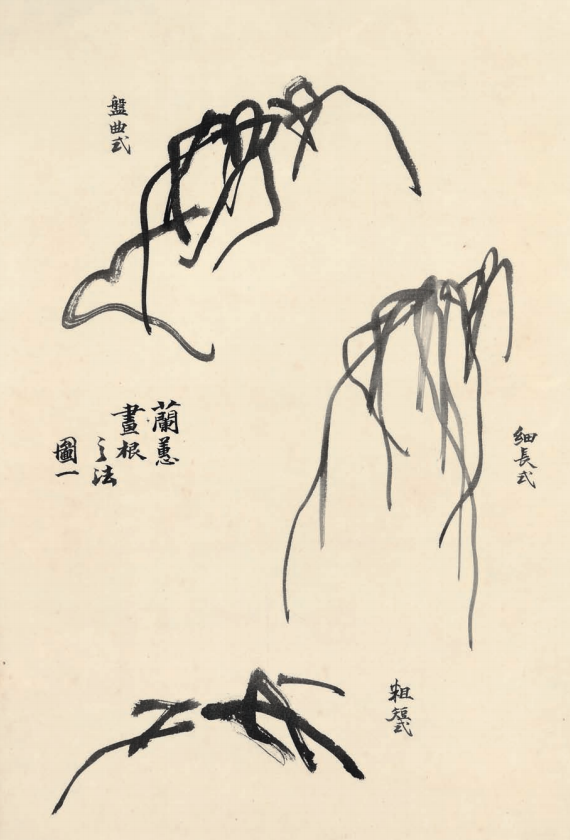 盤曲式
細長式
蘭蕙
畫根
之法
圖一
粗短式